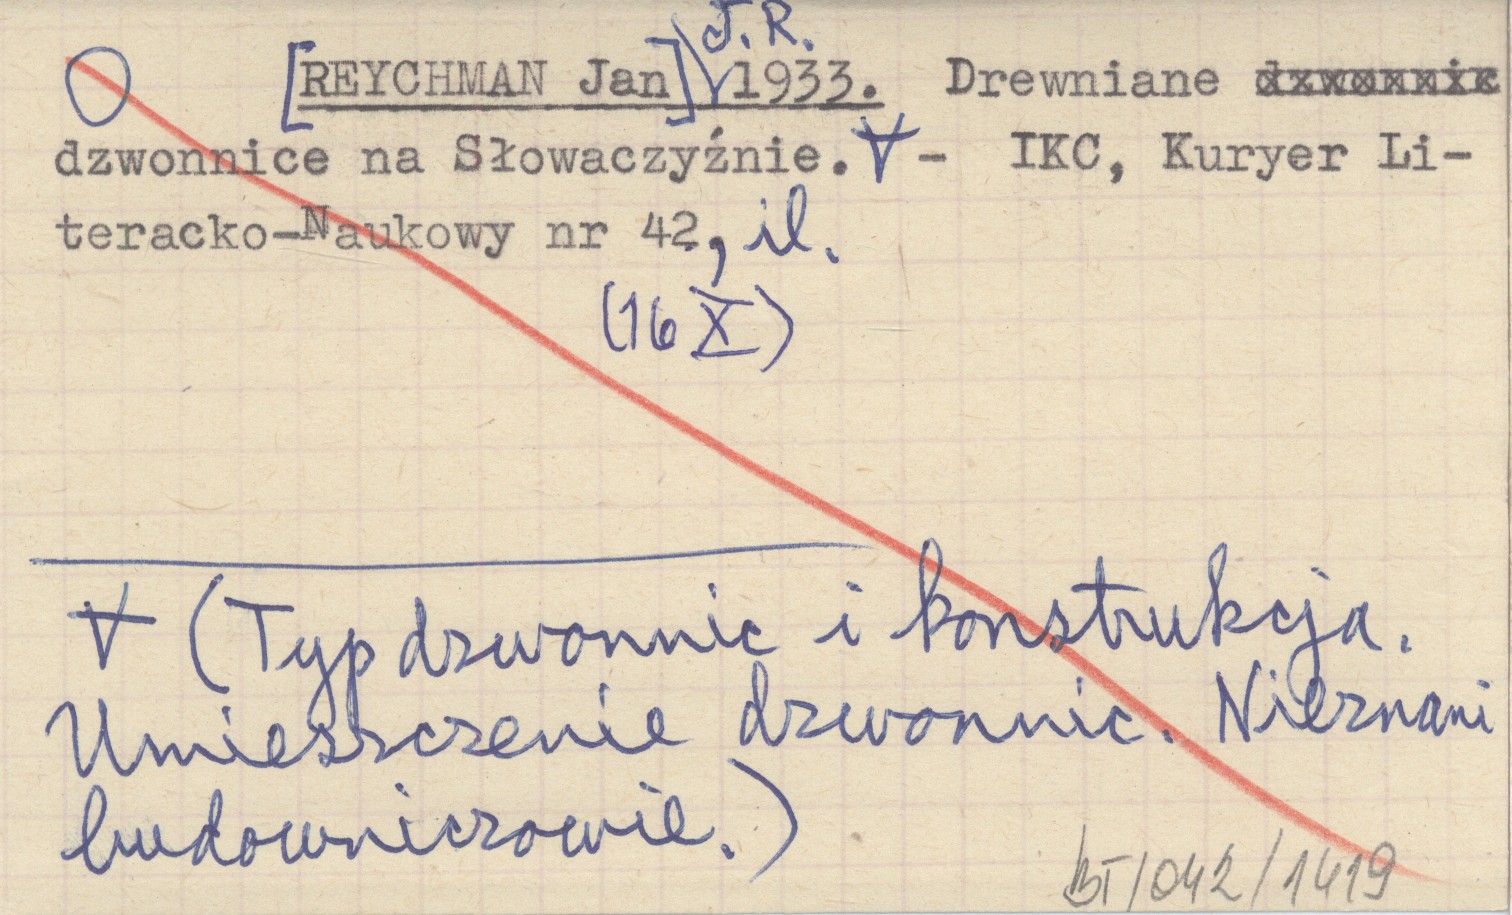 J. R.
[REYCHMAN Jan] 1933. Drewniane dzwonnic
dzwonnice na Słowaczyźnie. ∀ - IKC, Kuryer Li-
teracko-Naukowy nr 42, il.
(16 X)
∀ (Typ dzwonnic i konstrukcja.
Umieszczenie dzwonnic. Nieznani
budowniczowie.)
BT/042/1419